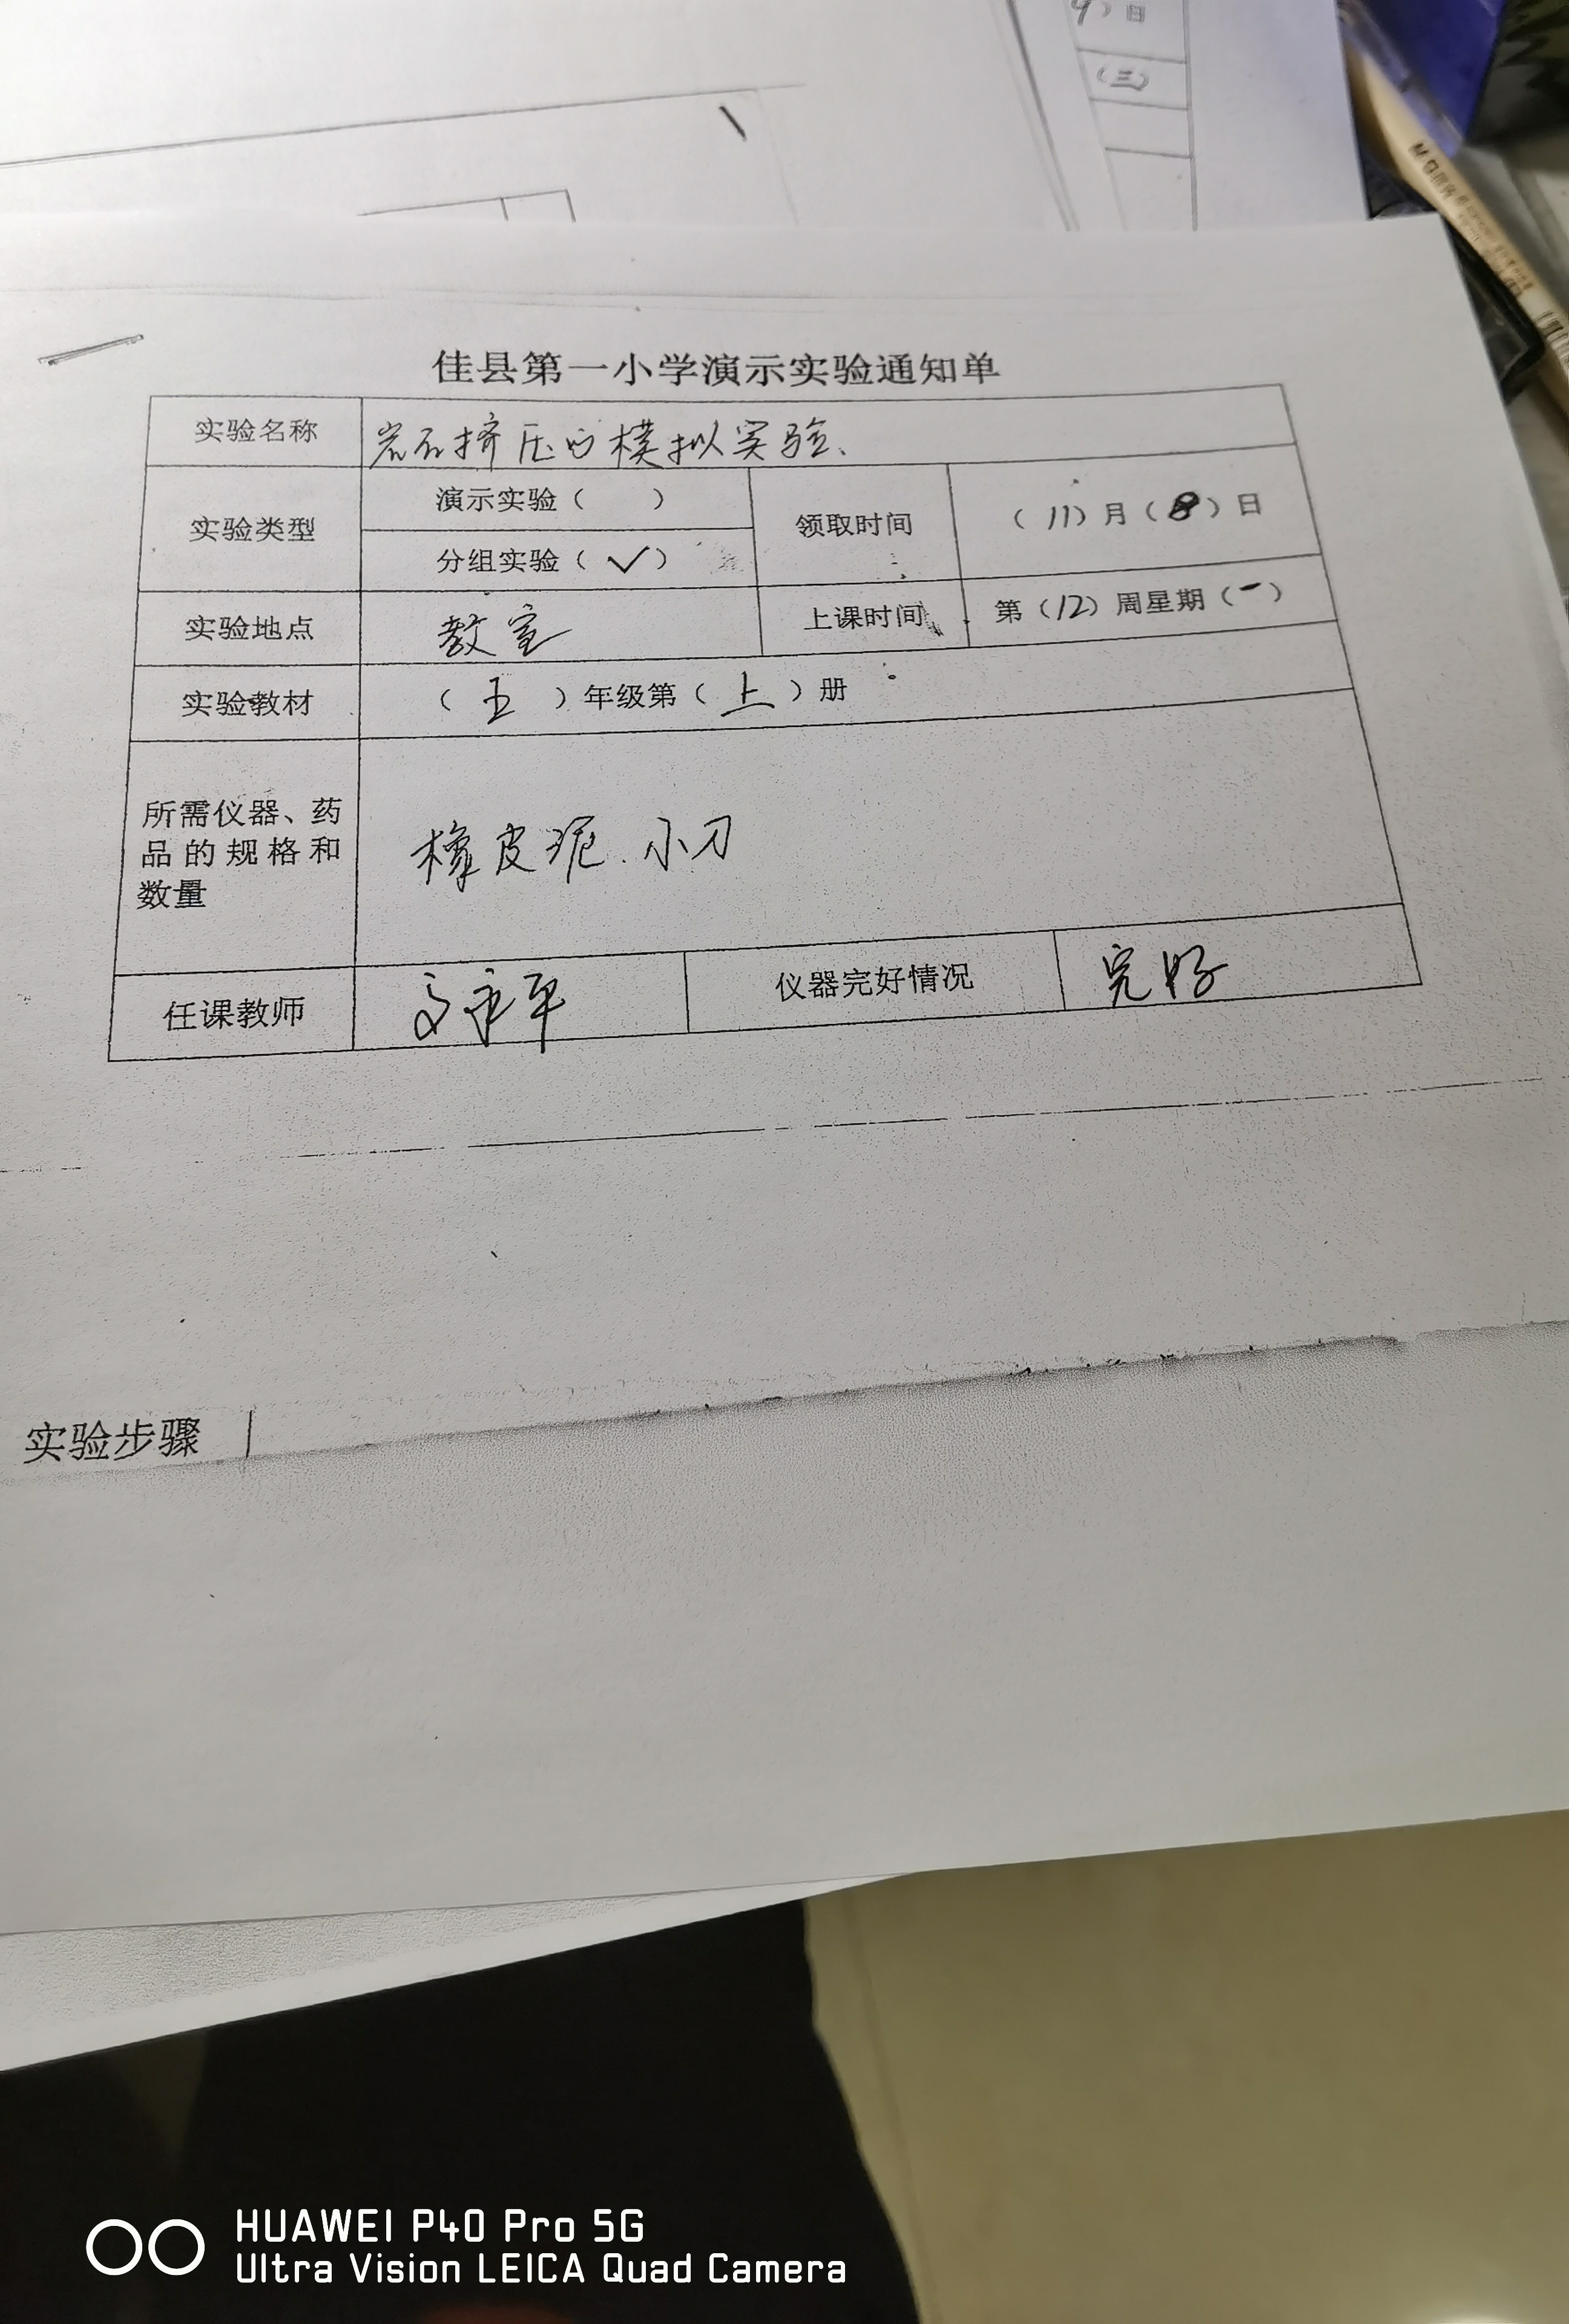 9）日
（三）
佳县第一小学演示实验通知单
实验名称 岩石挤压的模拟实验、
实验类型 演示实验（ ） 领取时间 （11）月（8）日
分组实验（✓）
实验地点 教室 上课时间 第（12）周星期（一）
实验教材 （五）年级第（上）册
所需仪器、药
品的规格和
数量
橡皮泥、小刀
任课教师 永平 仪器完好情况 完好
实验步骤
HUAWEI P40 Pro 5G
Ultra Vision LEICA Quad Camera